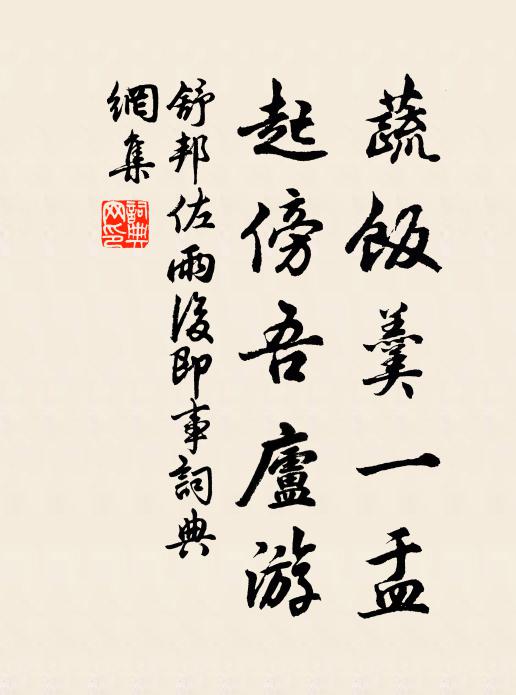 蔬飯羹一盂
起傍吾廬游
舒邦佐雨後即事詞典
網集
詞典網印